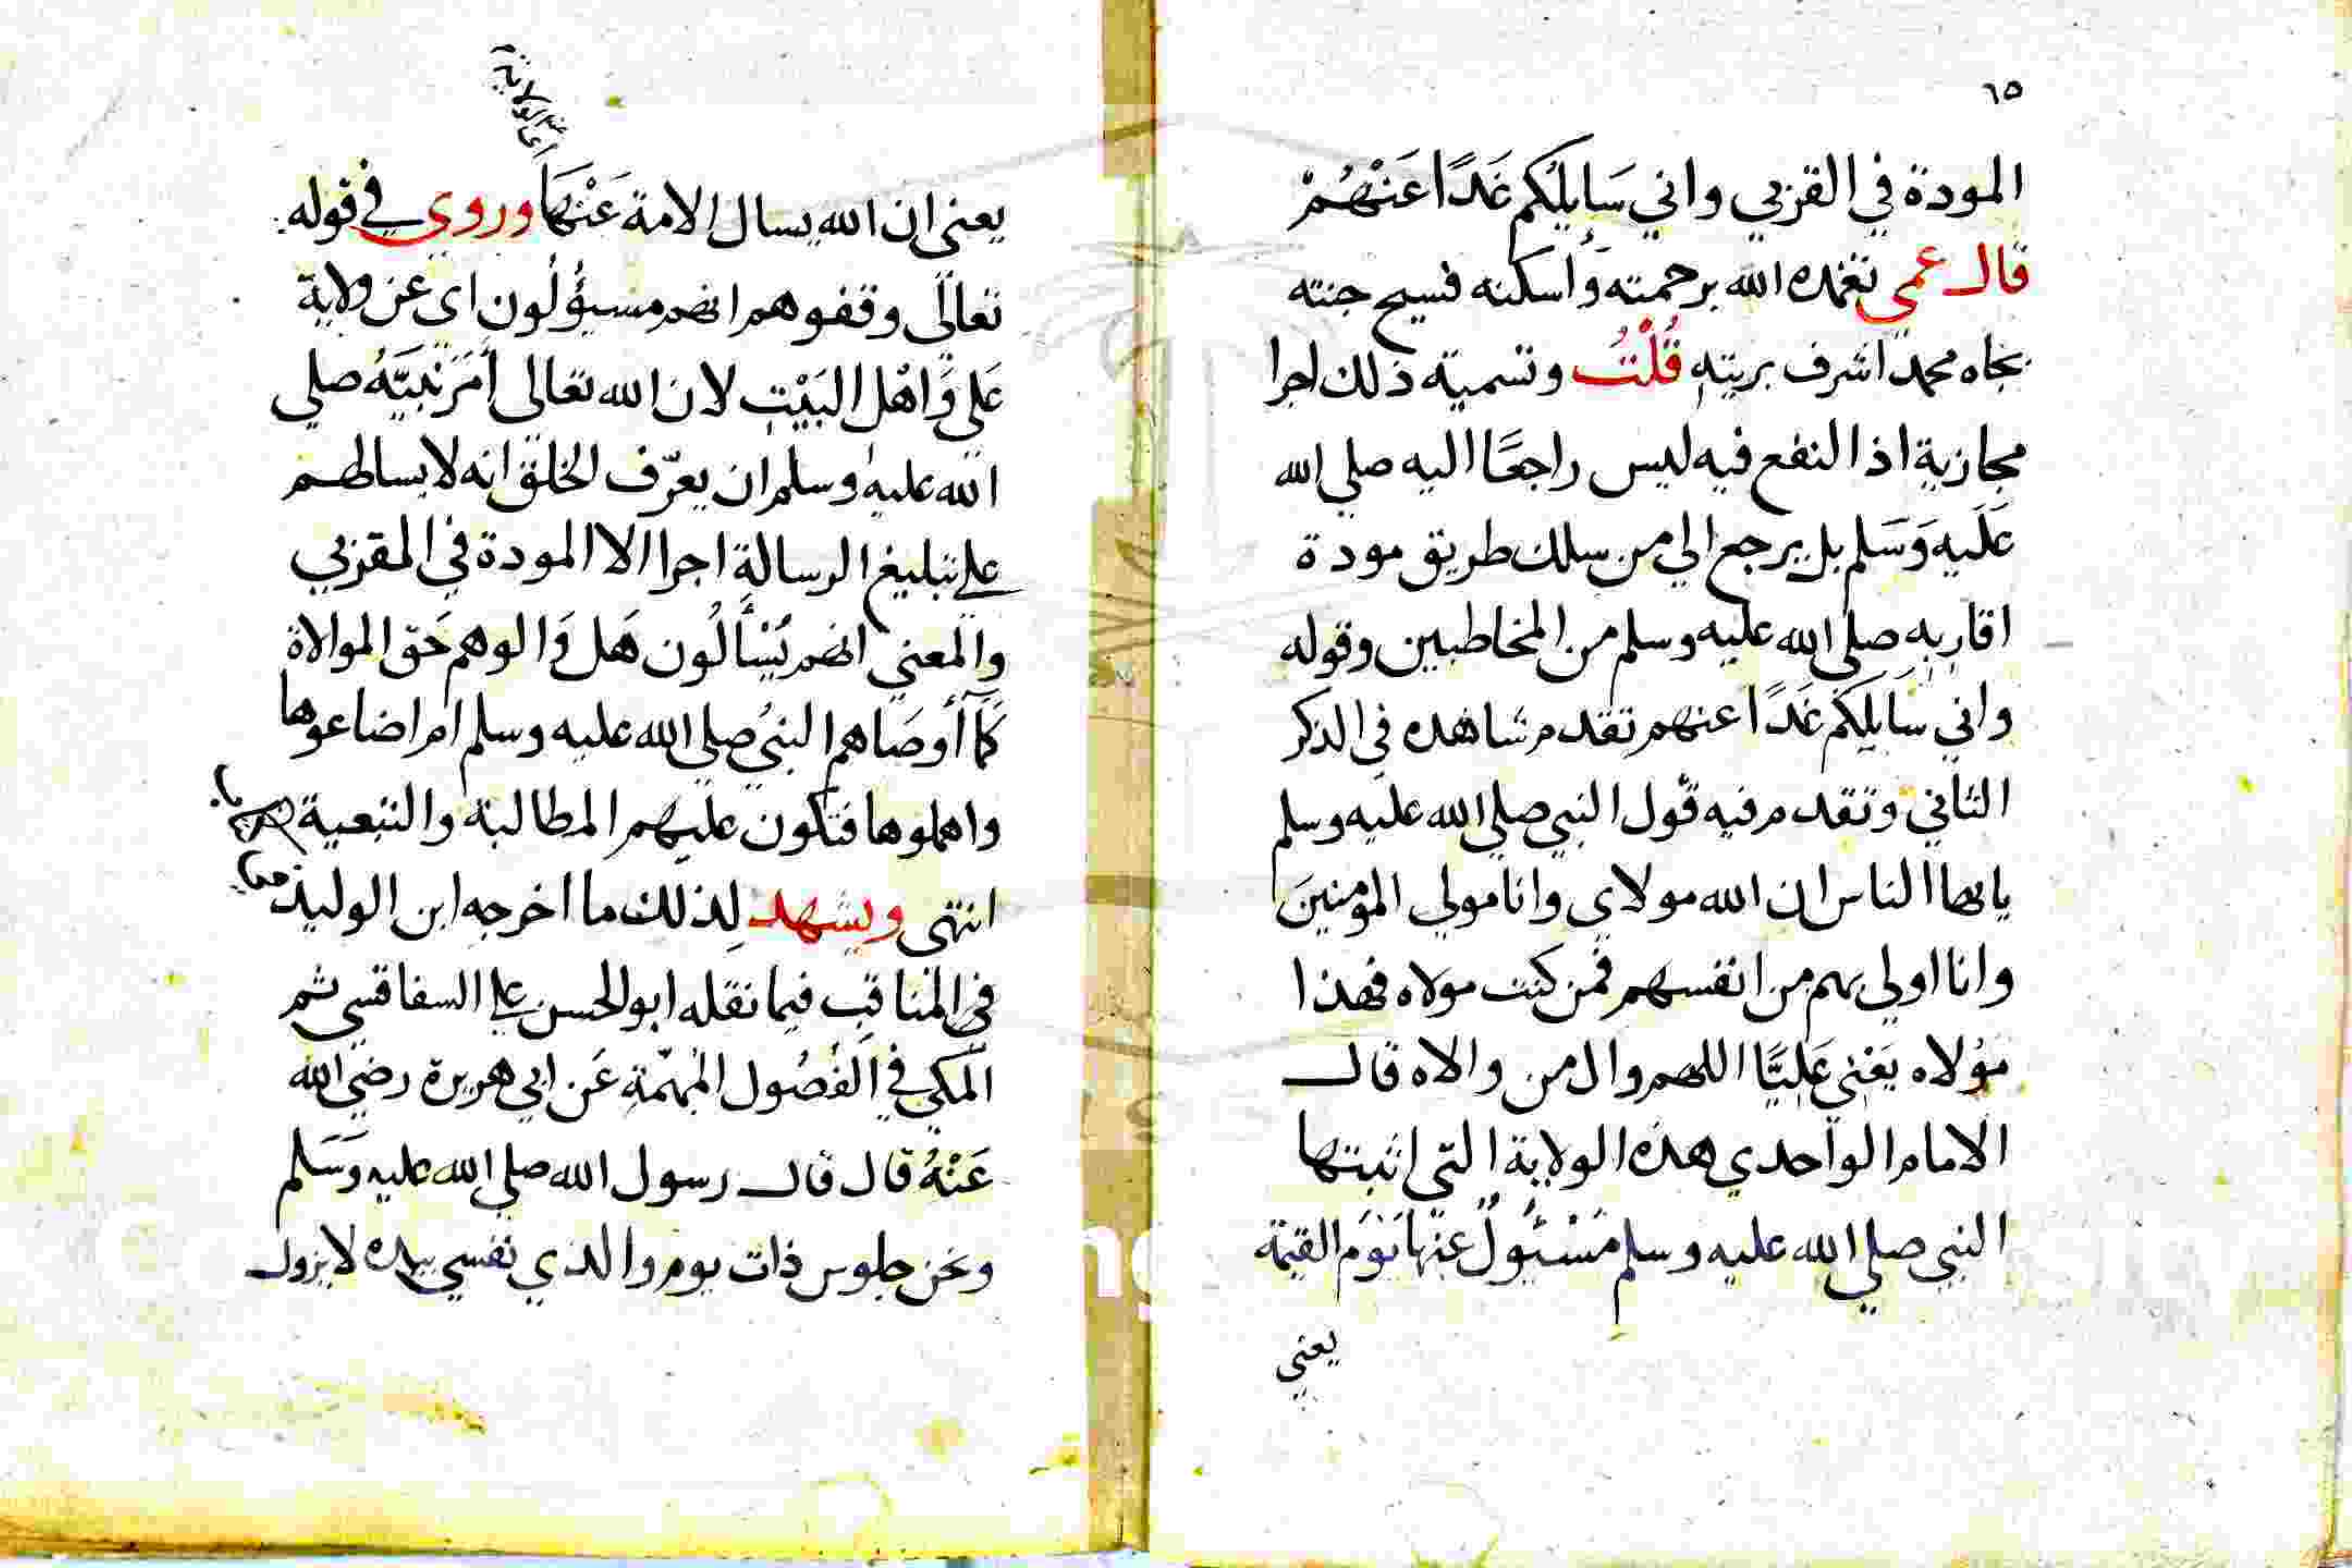 ٦٥
المودة في القربي واني سَايلُكم غَدًا عَنْهُمْ
قال عمي تغمده الله برحمته وأسكنه فسيح جنته
بجاه محمد اشرف بريته قُلْتُ وتسمية ذلك اجرا
مجازية اذ النفع فيه ليس راجعًا اليه صلي الله
عَلَيه وَسَلم بل يرجع الي من سلك طريق مودة
اقاربه صلي الله عليه وسلم من المخاطبين وقوله
واني سَايلكم غَدًا عنهم تقدم شاهده في الذكر
الثاني وتقدم فيه قول النبي صلي الله عليه وسلم
يايها الناس ان الله مولاي وانا مولي المؤمنينَ
وانا اولي بهم من انفسهم فمن كنت مولاه فهذا
مَوْلاه يَعْني عَلِيًّا اللهم وال من والاه قال
الامام الواحدي هذه الولاية التي اثبتها
النبي صلي الله عليه وسلم مَسْئُولٌ عنها يَوْمَ القيمة
يعني
أي الولاية
يعني ان الله يسال الامة عَنْهَا وروي في قوله
تعالى وقفوهم انهم مسؤُلُون اي عن ولاية
عَلي وَاهْل البَيْتِ لان الله تعالى أمَرَ نَبيَّهُ صلي
الله عليه وسلم ان يعرّف الخلق انه لا يسالهم
علي تبليغ الرسالة اجرا الا المودة في القربي
والمعني انهم يُسْأَلُون هَل وَالوهم حَق الموالاة
كمَا أَوصَاهم النبيُ صلي الله عليه وسلم ام اضاعوها
واهملوها فتكون عليهم المطالبة والتبعية
انتهى ويشهد لِذلك ما اخرجه ابن الوليد
في المناقب فيما نقله ابو الحسن علي السفاقسي ثم
المكي في الفُصُول المُهمّةِ عَن ابي هريرة رضي الله
عَنْهُ قال قال رسول الله صلي الله عليه وَسَلم
ونحن جلوس ذات يوم والذي نفسي بيده لا يزول